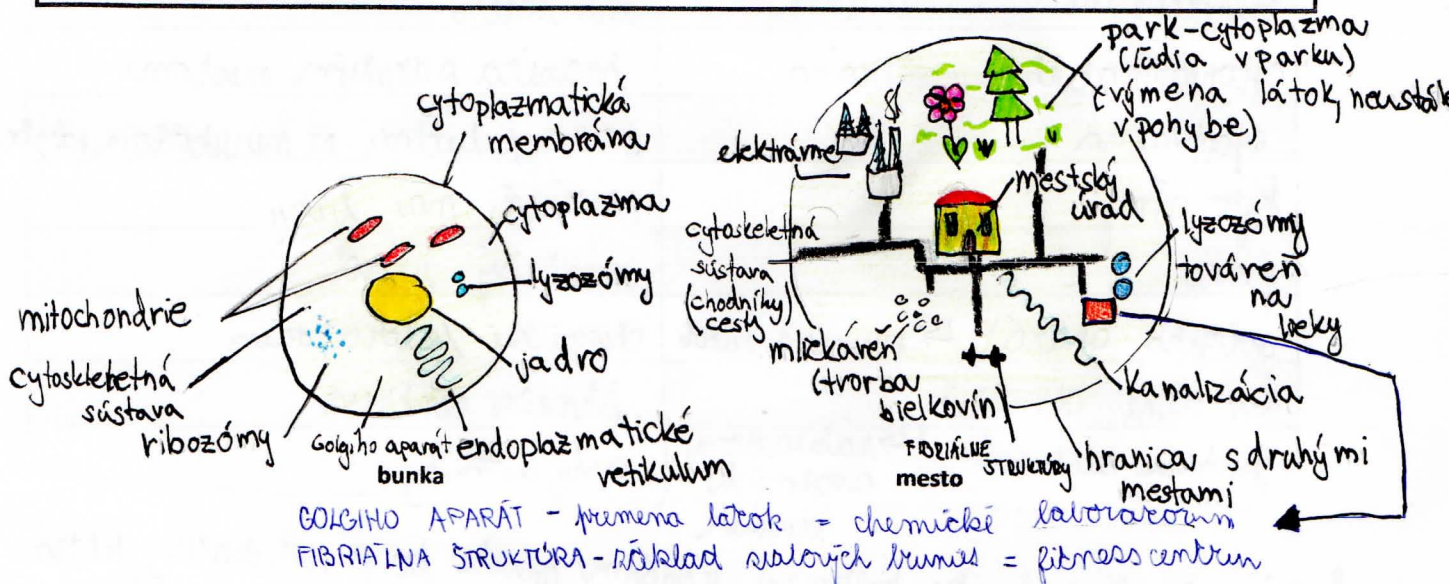 cytoplazmatická
membrána
cytoplazma
lyzozómy
jadro
mitochondrie
cytoskeletná
sústava
ribozómy
Golgiho aparát
endoplazmatické
retikulum
bunka
park-cytoplazma
(ľudia v parku)
(výmena látok, neustál
v pohybe)
elektrárne
mestský
úrad
cytoskeletná
sústava
(chodníky)
cesty
lyzozómy
továreň
na
lieky
mliekáreň
(tvorba
bielkovín)
kanalizácia
FIBRIÁLNE
ŠTRUKTÚRY
hranica s druhými
mestami
mesto
GOLGIHO APARÁT - premena látok = chemické laboratórium
FIBRIÁLNA ŠTRUKTÚRA - základ svalových buniek = fitness centrum